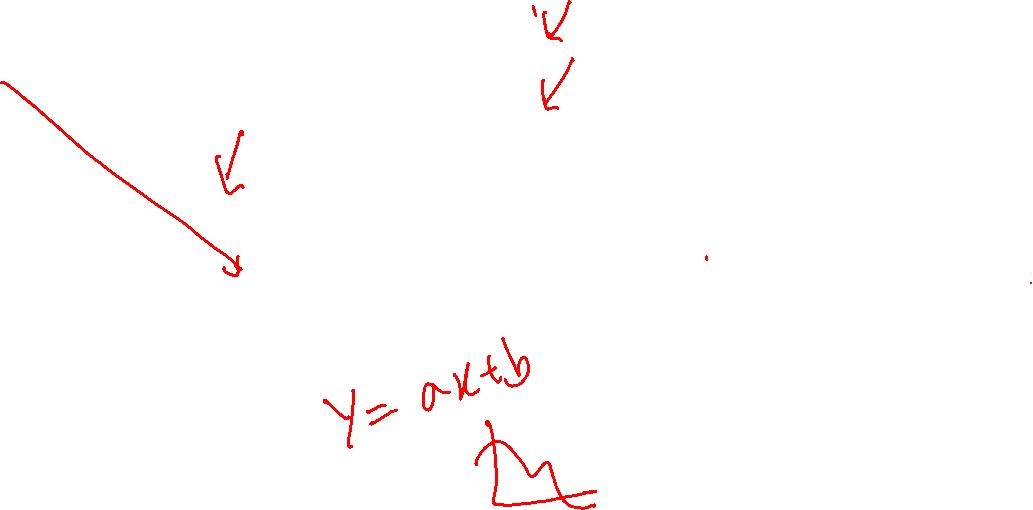 y = ax+b